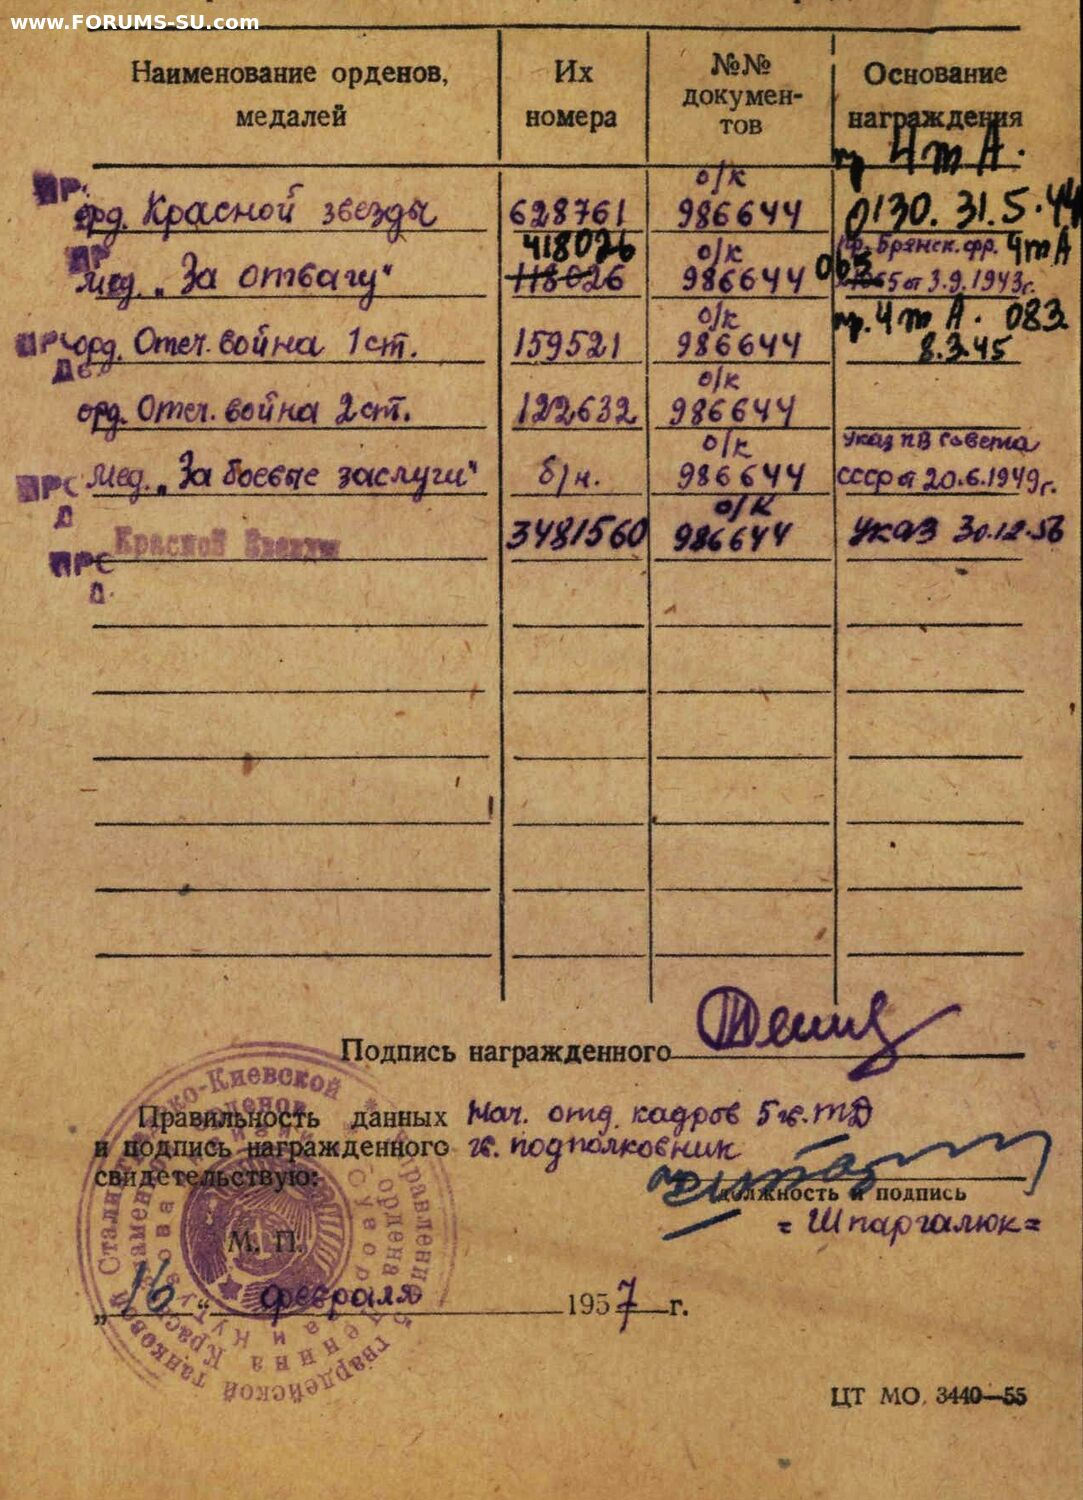 www.FORUMS-SU.com
Наименование орденов, медалей
Их номера
№№ документов
Основание награждения
пр. 4 т А.
ПР.
орд. Красной звезды
628761
о/к 986644
0130. 31.5.44
ПР
мед. „За отвагу"
418026
118026
о/к 986644
Брянск. фр. 4 т А
065 от 3.9.1943г.
орд. Отеч. война 1 ст.
159521
о/к 986644
пр. 4 т А. 083
8.3.45
орд. Отеч. война 2 ст.
122632
о/к 986644
ПРС Д
мед. „За боевые заслуги"
б/н.
о/к 986644
Указ ПВ Совета
СССР от 20.6.1949г.
ПРС Д.
Красной Звезды
3481560
о/к 986644
Указ 30.12.56
Подпись награжденного
Правильность данных
и подпись награжденного
свидетельствую:
Нач. отд. кадров 5 гв. ТД
гв. подполковник
должность и подпись
= Шпаргалюк =
М. П.
„16" февраля 1957 г.
ЦТ МО. 3440—55